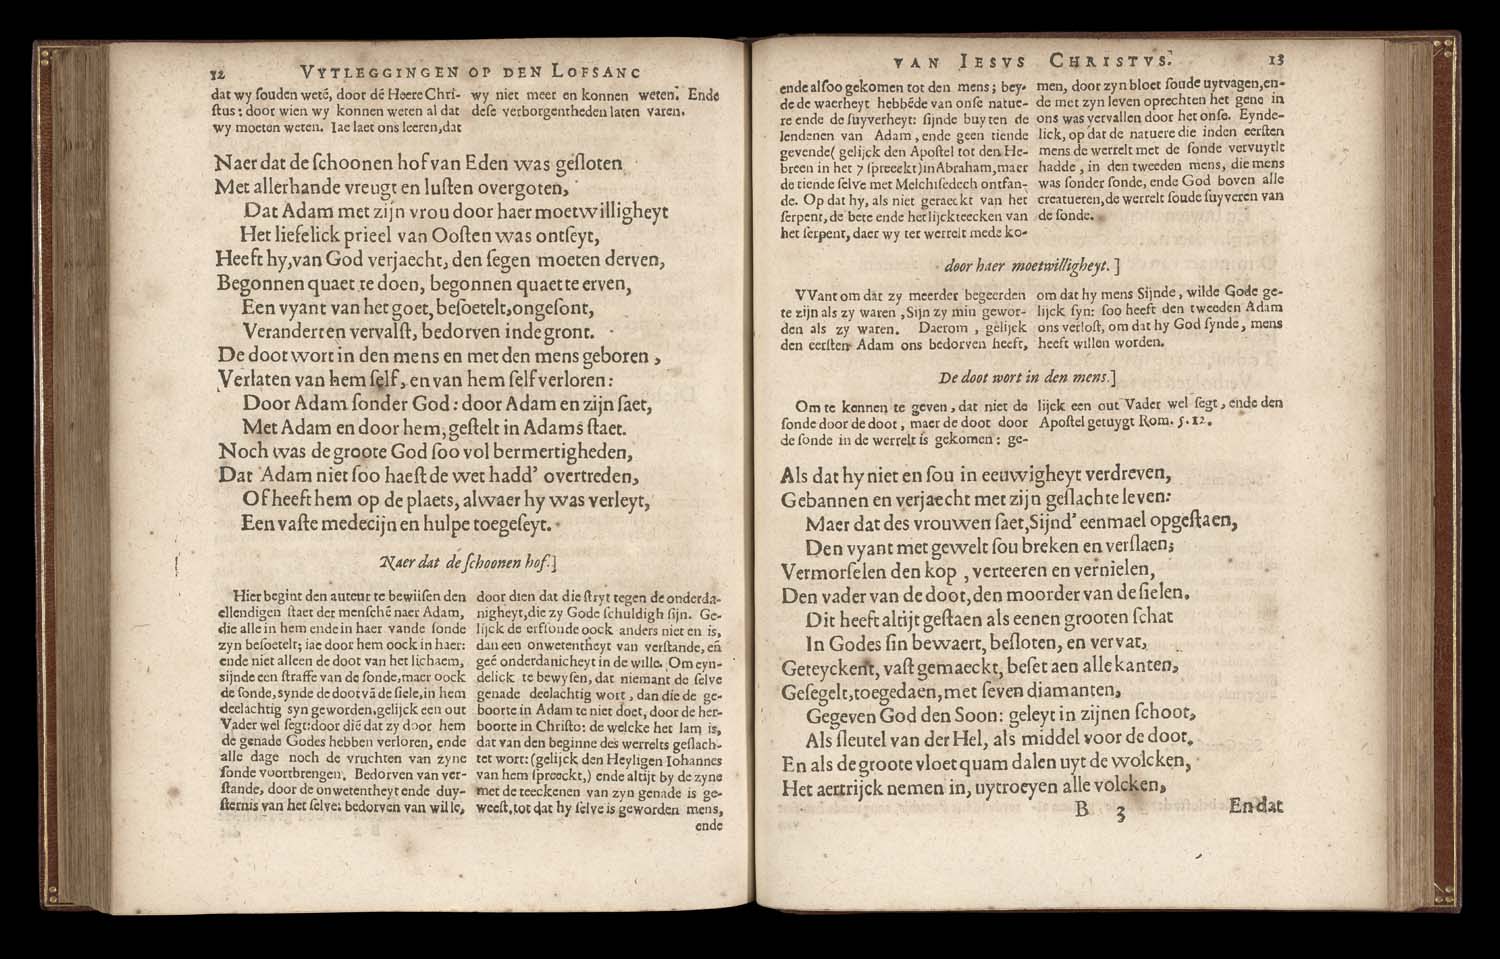 12 VYTLEGGINGEN OP DEN LOFSANC
dat wy ſouden wetẽ, door dẽ Heere Chri-
ſtus: door wien wy konnen weten al dat
wy moeten weten. Iae laet ons leeren,dat
wy niet meer en konnen weten. Ende
deſe verborgentheden laten varen.
Naer dat de ſchoonen hof van Eden was geſloten
Met allerhande vreugt en luſten overgoten,
Dat Adam met zijn vrou door haer moetwilligheyt
Het liefelick prieel van Ooſten was ontſeyt,
Heeft hy,van God verjaecht, den ſegen moeten derven,
Begonnen quaet te doen, begonnen quaet te erven,
Een vyant van het goet, beſoetelt,ongeſont,
Verandert en vervalſt, bedorven inde gront.
De doot wort in den mens en met den mens geboren,
Verlaten van hem ſelf, en van hem ſelf verloren:
Door Adam ſonder God: door Adam en zijn ſaet,
Met Adam en door hem, geſtelt in Adams ſtaet.
Noch was de groote God ſoo vol bermertigheden,
Dat Adam niet ſoo haeſt de wet hadd' overtreden,
Of heeft hem op de plaets, alwaer hy was verleyt,
Een vaſte medecijn en hulpe toegeſeyt.
Naer dat de ſchoonen hof.]
Hier begint den auteur te bewijſen den
ellendigen ſtaet der menſchẽ naer Adam,
die alle in hem ende in haer vande ſonde
zyn beſoetelt; iae door hem oock in haer:
ende niet alleen de doot van het lichaem,
sijnde een ſtraffe van de ſonde,maer oock
de ſonde, synde de doot vã de ſiele, in hem
deelachtig syn geworden, gelijck een out
Vader wel ſegt:door diẽ dat zy door hem
de genade Godes hebben verloren, ende
alle dage noch de vruchten van zyne
ſonde voortbrengen. Bedorven van ver-
ſtande, door de onwetentheyt ende duy-
ſternis van het ſelve: bedorven van wille,
door dien dat die ſtryt tegen de onderda-
nigheyt, die zy Gode ſchuldigh ſijn. Ge-
lijck de erfſonde oock anders niet en is,
dan een onwetentheyt van verſtande, eñ
geẽ onderdanicheyt in de wille. Om eyn-
delick te bewyſen, dat niemant de ſelve
genade deelachtig wort, dan die de ge-
boorte in Adam te niet doet, door de her-
boorte in Chriſto: de welcke het lam is,
dat van den beginne des werrelts geſlach-
tet wort: (gelijck den Heyligen Iohannes
van hem ſpreeckt,) ende altijt by de zyne
met de teeckenen van zyn genade is ge-
weeſt, tot dat hy ſelve is geworden mens,
ende
VAN IESVS CHRISTVS. 13
ende alſoo gekomen tot den mens; bey-
de de waerheyt hebbẽde van onſe natue-
re ende de ſuyverheyt: ſijnde buyten de
lendenen van Adam, ende geen tiende
gevende( gelijck den Apoſtel tot den He-
breen in het 7 ſpreeekt)in Abraham,maer
de tiende ſelve met Melchiſedech ontfan-
de. Op dat hy, als niet geraeckt van het
ſerpent, de bete ende het lijckteecken van
het ſerpent, daer wy ter werrelt mede ko-
men, door zyn bloet ſoude uytvagen,en-
de met zyn leven oprechten het gene in
ons was vervallen door het onſe. Eynde-
lick, op dat de natuere die inden eerſten
mens de werrelt met de ſonde vervuylt
hadde, in den tweeden mens, die mens
was ſonder ſonde, ende God boven alle
creatueren,de werrelt ſoude ſuyveren van
de ſonde.
door haer moetwilligheyt.]
VVant om dat zy meerder begeerden
te zijn als zy waren, Sijn zy min gewor-
den als zy waren. Daerom, gelijck
den eerſten Adam ons bedorven heeft,
om dat hy mens Sijnde, wilde Gode ge-
lijck ſyn: ſoo heeft den tweeden Adam
ons verloſt, om dat hy God ſynde, mens
heeft willen worden.
De doot wort in den mens.]
Om te kennen te geven, dat niet de
ſonde door de doot, maer de doot door
de ſonde in de werrelt is gekomen: ge-
lijck een out Vader wel ſegt, ende den
Apoſtel getuygt Rom. 5.12.
Als dat hy niet en ſou in eeuwigheyt verdreven,
Gebannen en verjaecht met zijn geſlachte leven:
Maer dat des vrouwen ſaet,Sijnd' eenmael opgeſtaen,
Den vyant met gewelt ſou breken en verſlaen;
Vermorſelen den kop, verteeren en vernielen,
Den vader van de doot, den moorder van de ſielen.
Dit heeft altijt geſtaen als eenen grooten ſchat
In Godes ſin bewaert, beſloten, en vervat,
Geteyckent, vaſt gemaeckt, beſet aen alle kanten,
Geſegelt,toegedaen, met ſeven diamanten,
Gegeven God den Soon: geleyt in zijnen ſchoot,
Als ſleutel van der Hel, als middel voor de doot.
En als de groote vloet quam dalen uyt de wolcken,
Het aertrijck nemen in, uytroeyen alle volcken,
B 3 En dat